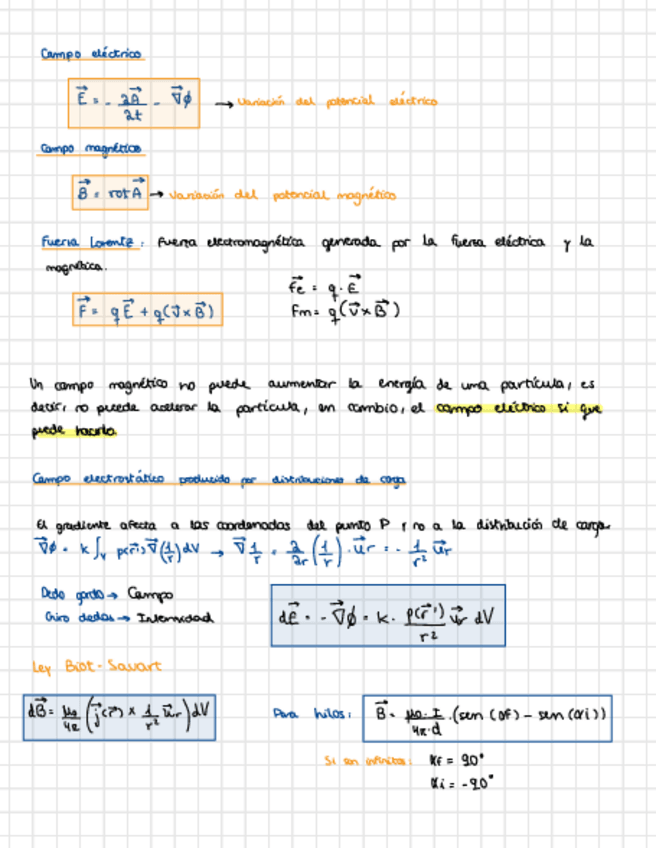 Campo eléctrico
E⃗ = - ∂A⃗/∂t - ∇⃗ϕ → Variación del potencial eléctrico
Campo magnético
B⃗ = rot A⃗ → Variación del potencial magnético
Fuerza Lorentz: Fuerza electromagnética generada por la fuerza eléctrica y la
magnética.
F⃗e = q·E⃗
F⃗ = qE⃗ + q(v⃗ x B⃗)
Fm = q(v⃗ x B⃗)
Un campo magnético no puede aumentar la energía de una partícula, es
decir, no puede acelerar la partícula, en cambio, el campo eléctrico si que
puede hacerlo
Campo electrostático producido por distribuciones de carga
El gradiente afecta a las coordenadas del punto P y no a la distribución de carga
∇⃗ϕ = k ∫v ρ(r⃗') ∇⃗(1/r) dV → ∇⃗ 1/r = ∂/∂r (1/r) · u⃗r = - 1/r² u⃗r
Dedo gordo → Campo
Giro dedos → Intensidad
dE⃗ = - ∇⃗ϕ = k · ρ(r⃗')/r² u⃗r dV
Ley Biot-Savart
dB⃗ = μ₀/4π (j⃗(r⃗) x 1/r² u⃗r) dV
Para hilos: B⃗ = μ₀·I/4π·d · (sen(αf) - sen(αi))
Si son infinitos: αf = 90°
αi = -90°